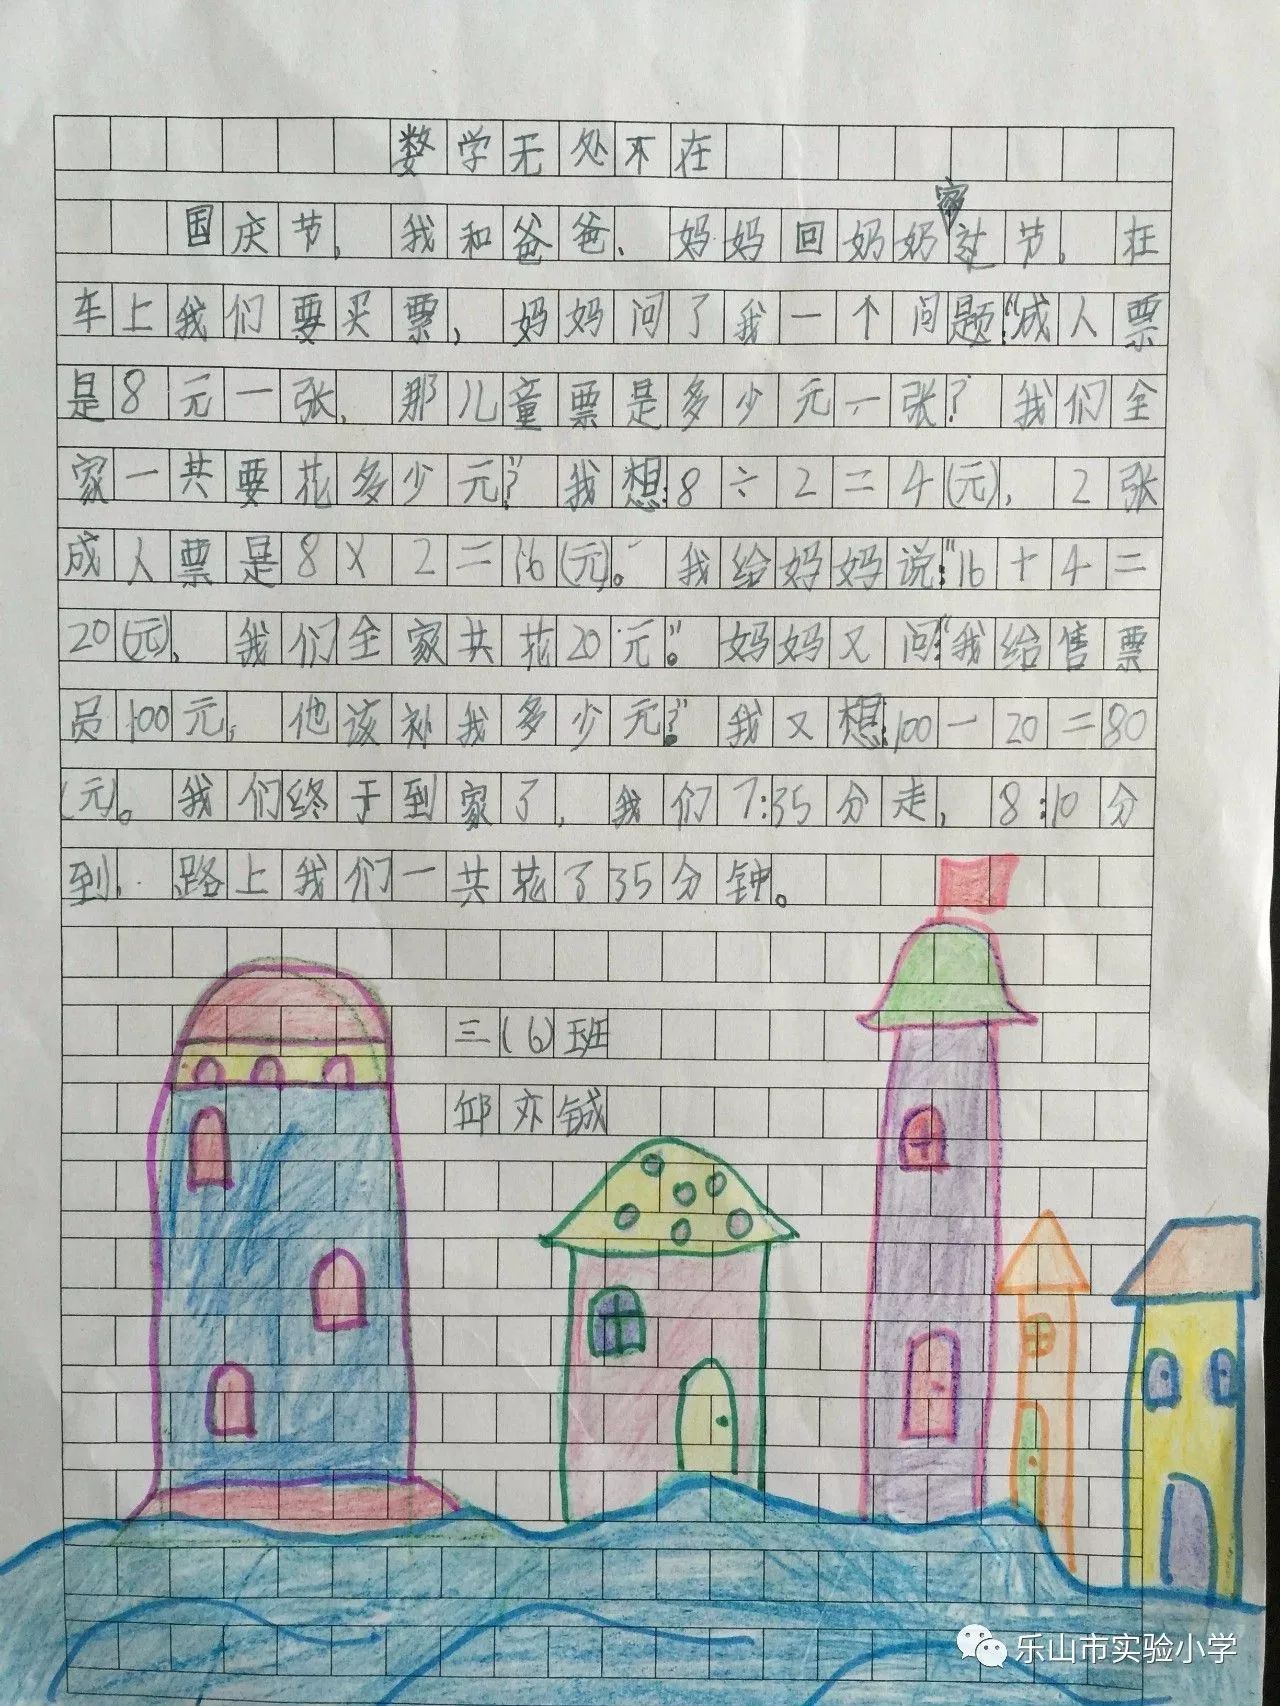 数学无处不在
国庆节，我和爸爸、妈妈回奶奶家过节。在
车上我们要买票，妈妈问了我一个问题：“成人票
是8元一张，那儿童票是多少元一张？我们全
家一共要花多少元？”我想：8÷2=4(元)，2张
成人票是8×2=16(元)。我给妈妈说：“16+4=
20(元)，我们全家共花20元。”妈妈又问：“我给售票
员100元，他该补我多少元？”我又想：100-20=80
(元)。我们终于到家了，我们7:35分走，8:10分
到，路上我们一共花了35分钟。
三(6)班
邱亦铖
乐山市实验小学